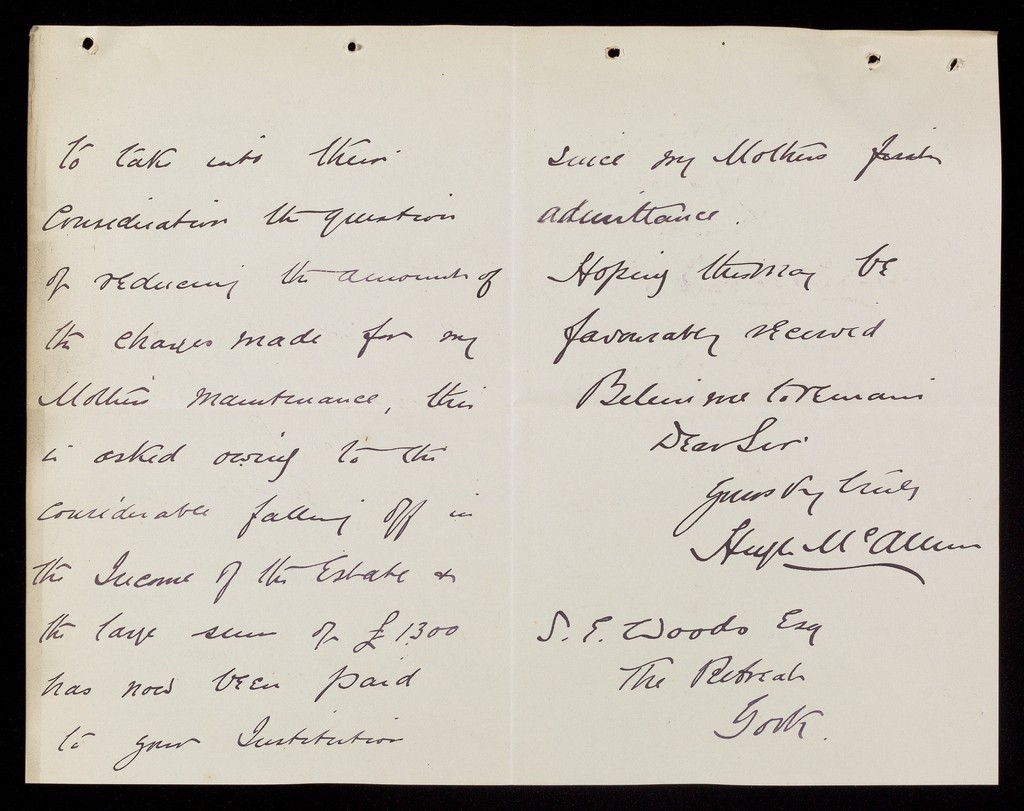 to take into their
Consideration the question
of reducing the amounts of
the charges made for my
Mothers maintenance, this
is asked owing to the
considerable falling off in
the Income of the Estate &
the large sum of £1300
has now been paid
to your Institution
since my Mothers first
admittance.
Hoping this may be
favourably received
Believe me to remain
Dear Sir
Yours very truly
Hugh McAllum
S. E. Woods Esq
The Retreat
York.